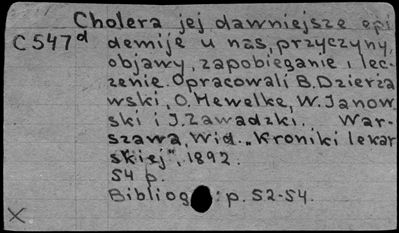 Cholera jej dawniejsze epi
C547d demije u nas, przyczyny,
objawy, zapobieganie i lec-
zenie. Opracowali B. Dzierża
wski, O. Hewelke, W. Janow
ski i J. Zawadzki. War-
szawa, Wid. „Kroniki lekar
skiej", 1892.
54 p.
Bibliog : p. 52-54.
X